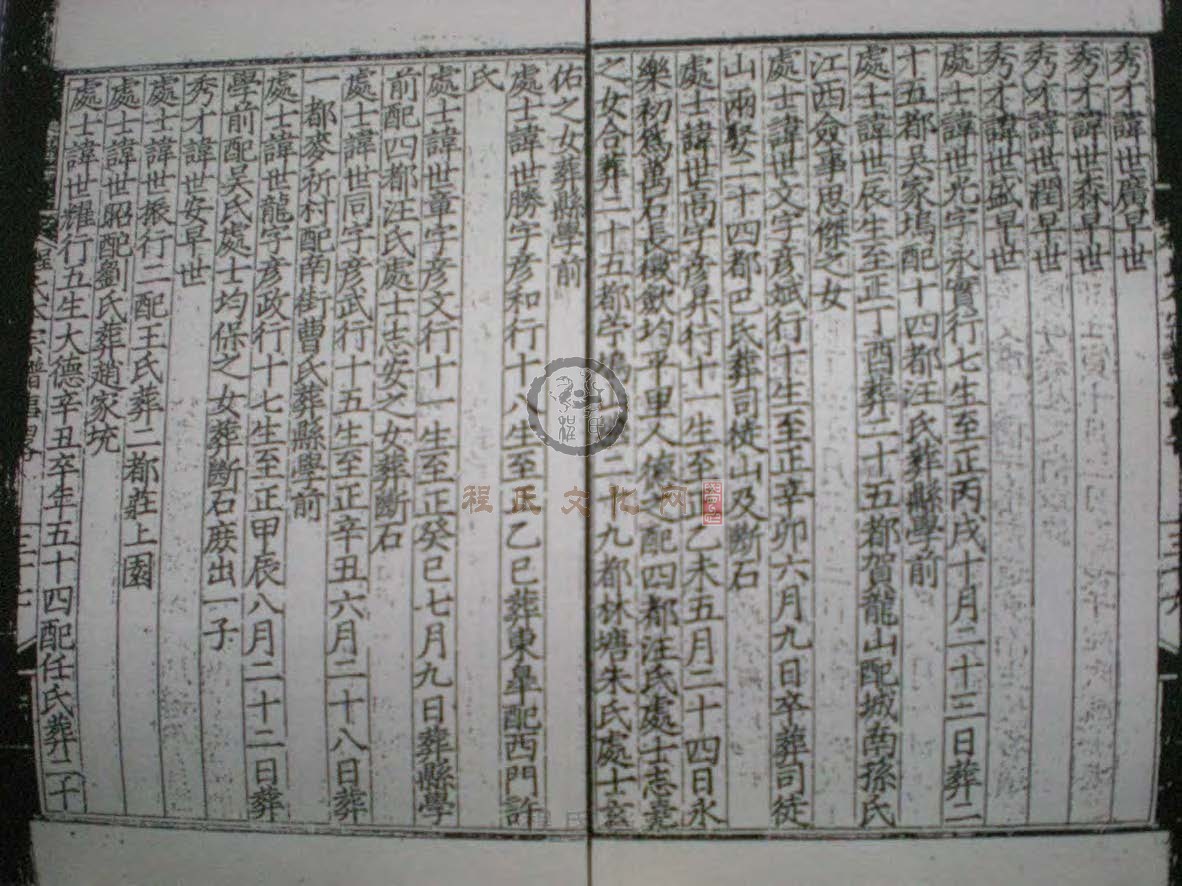 秀才諱世廣早世
秀才諱世森早世
秀才諱世潤早世
秀才諱世盛早世
處士諱世光字永實行七生至正丙戌十月二十三日葬二
十五都吴家塢配十四都汪氏葬縣學前
處士諱世辰生至正丁酉葬二十五都賀龍山配城南孫氏
江西僉事思傑之女
處士諱世文字彦斌行十生至正辛卯六月九日卒葬司徒
山兩娶二十四都巴氏葬司徒山及斷石
處士諱世高字彦昇行十一生至正乙未五月二十四日永
樂初爲萬石長稅歛均平里人德之配四都汪氏處士志亮
之女合葬二十五都 二 九都林塘朱氏處士玄
佑之女葬縣學前
處士諱世勝字彦和行十八生至正乙巳葬東皐配西門許
氏
處士諱世章字彦文行十一生至正癸巳七月九日葬縣學
前配四都汪氏處士志安之女葬斷石
處士諱世同字彦武行十五生至正辛丑六月二十八日葬
一都麥祈村配南街曹氏葬縣學前
處士諱世龍字彦政行十七生至正甲辰八月二十二日葬
學前配吴氏處士均保之女葬斷石庶出一子
秀才諱世安早世
處士諱世振行二配王氏葬二都莊上園
處士諱世昭配劉氏葬趙家坑
處士諱世耀行五生大德辛丑卒年五十四配任氏葬二十
程氏文化网